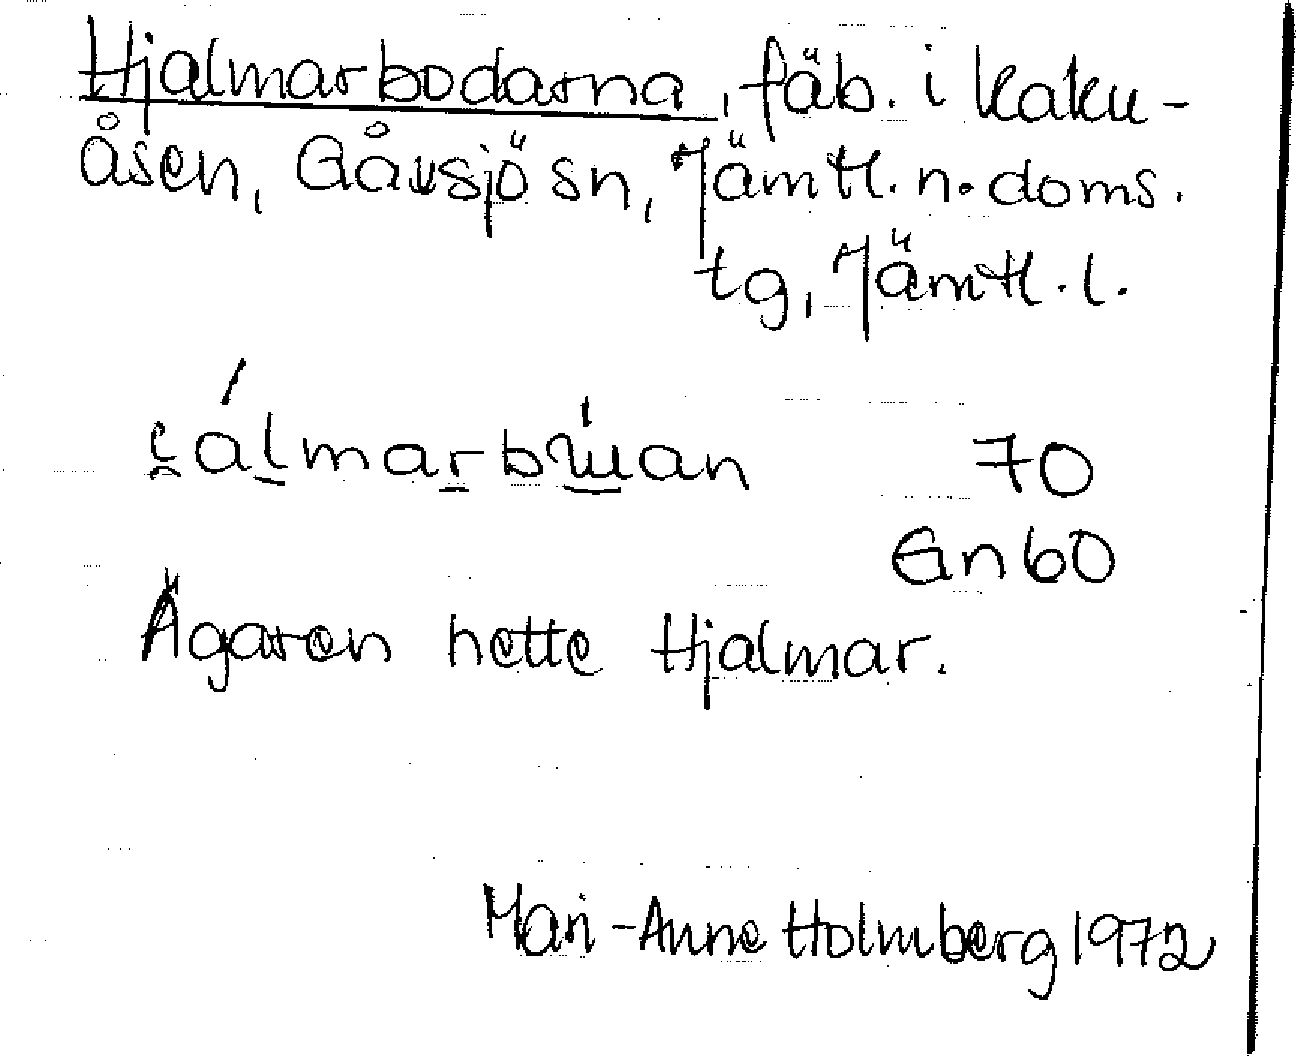 Hjalmarbodarna, fäb. i Kaku-
åsen, Gåvsjö sn, Jämtl. n. doms.
tg, Jämtl. l.
70
Gn 60
Ägaren hette Hjalmar.
Mari-Anne Holmberg 1972